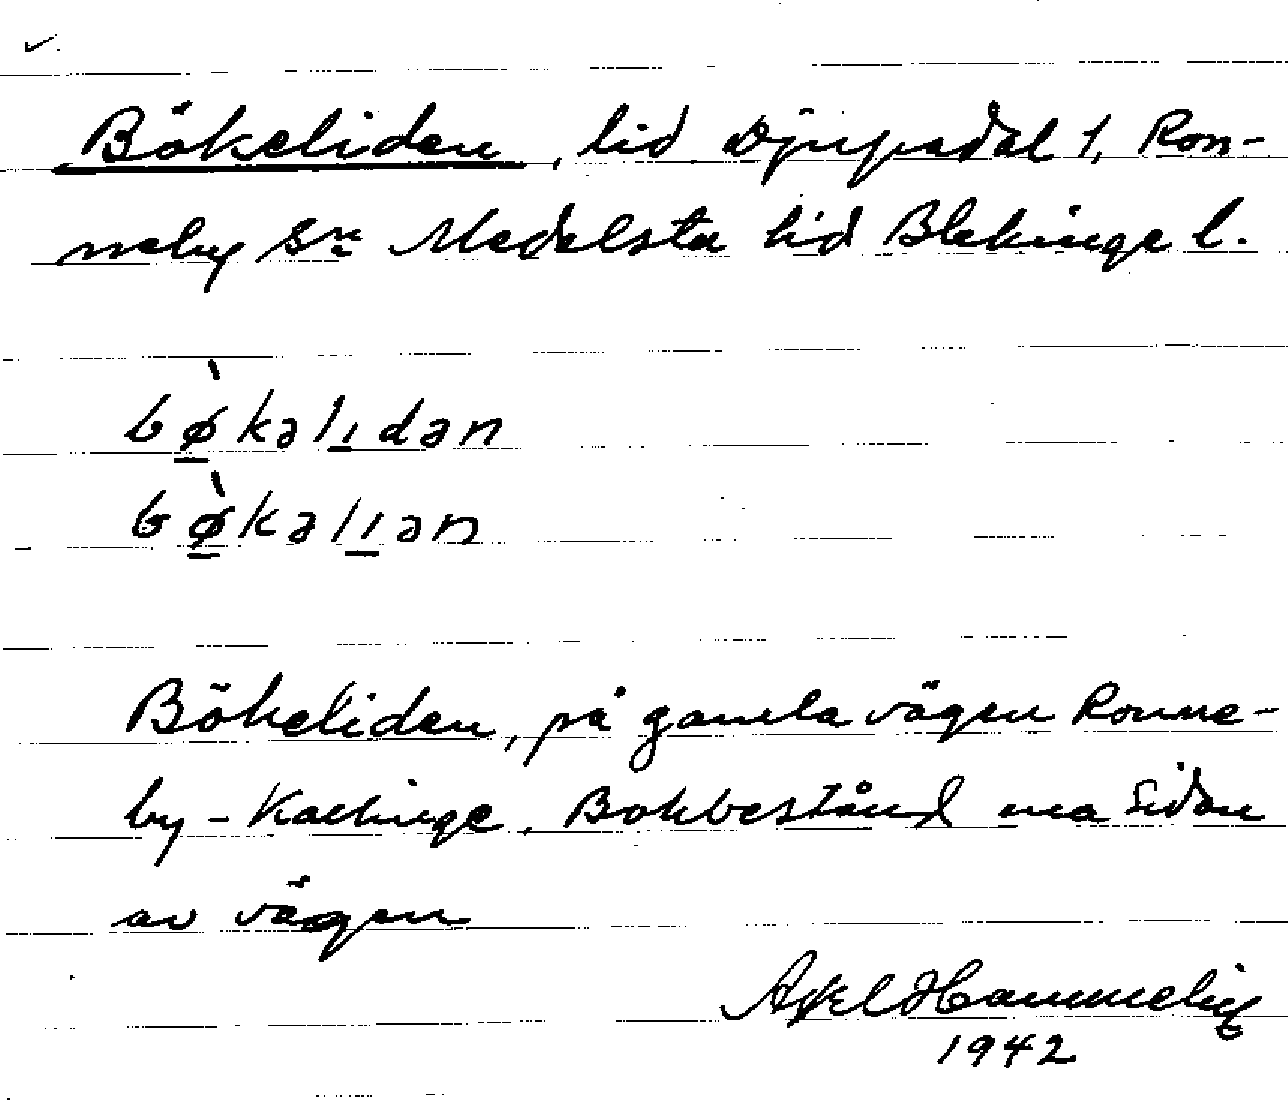 Bökeliden, lid Djupadal 1, Ron-
neby sn Medelsta hd Blekinge l.
bø̀kəlıdən
bø̀kəlıən
Bökeliden, på gamla vägen Ronne-
by - Kallinge. Bokbestånd ena sidan
av vägen
Axel
1942